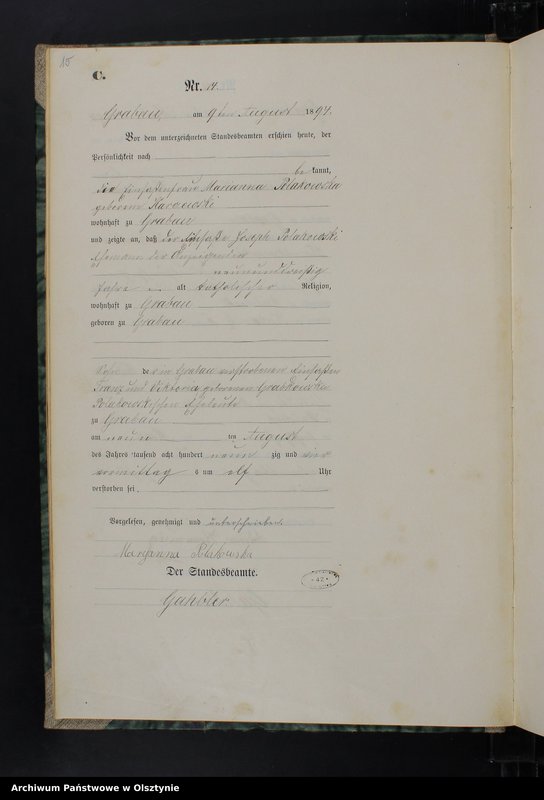 15
C.
Nr. 14.
Grabau, am 9ten August 1894.
Vor dem unterzeichneten Standesbeamten erschien heute, der
Persönlichkeit nach
be kannt,
die Einsassenfrau Marianna Polakowska
geborene
wohnhaft zu Grabau
und zeigte an, daß der Einsasse Joseph Polakowski
Ehemann der Anzeigenden
neununddreißig
Jahre alt katholischer Religion,
wohnhaft zu Grabau
geboren zu Grabau
Sohn der in Grabau verstorbenen Einsassen
Franz und Viktoria geborenen Grabkowska
Polakowskischen Eheleute
zu Grabau
am neun ten August
des Jahres tausend acht hundert neun zig und vier
vormittag s um elf Uhr
verstorben sei.
Vorgelesen, genehmigt und unterschrieben.
Maryanna Polakowska
Der Standesbeamte.
42
Archiwum Państwowe w Olsztynie